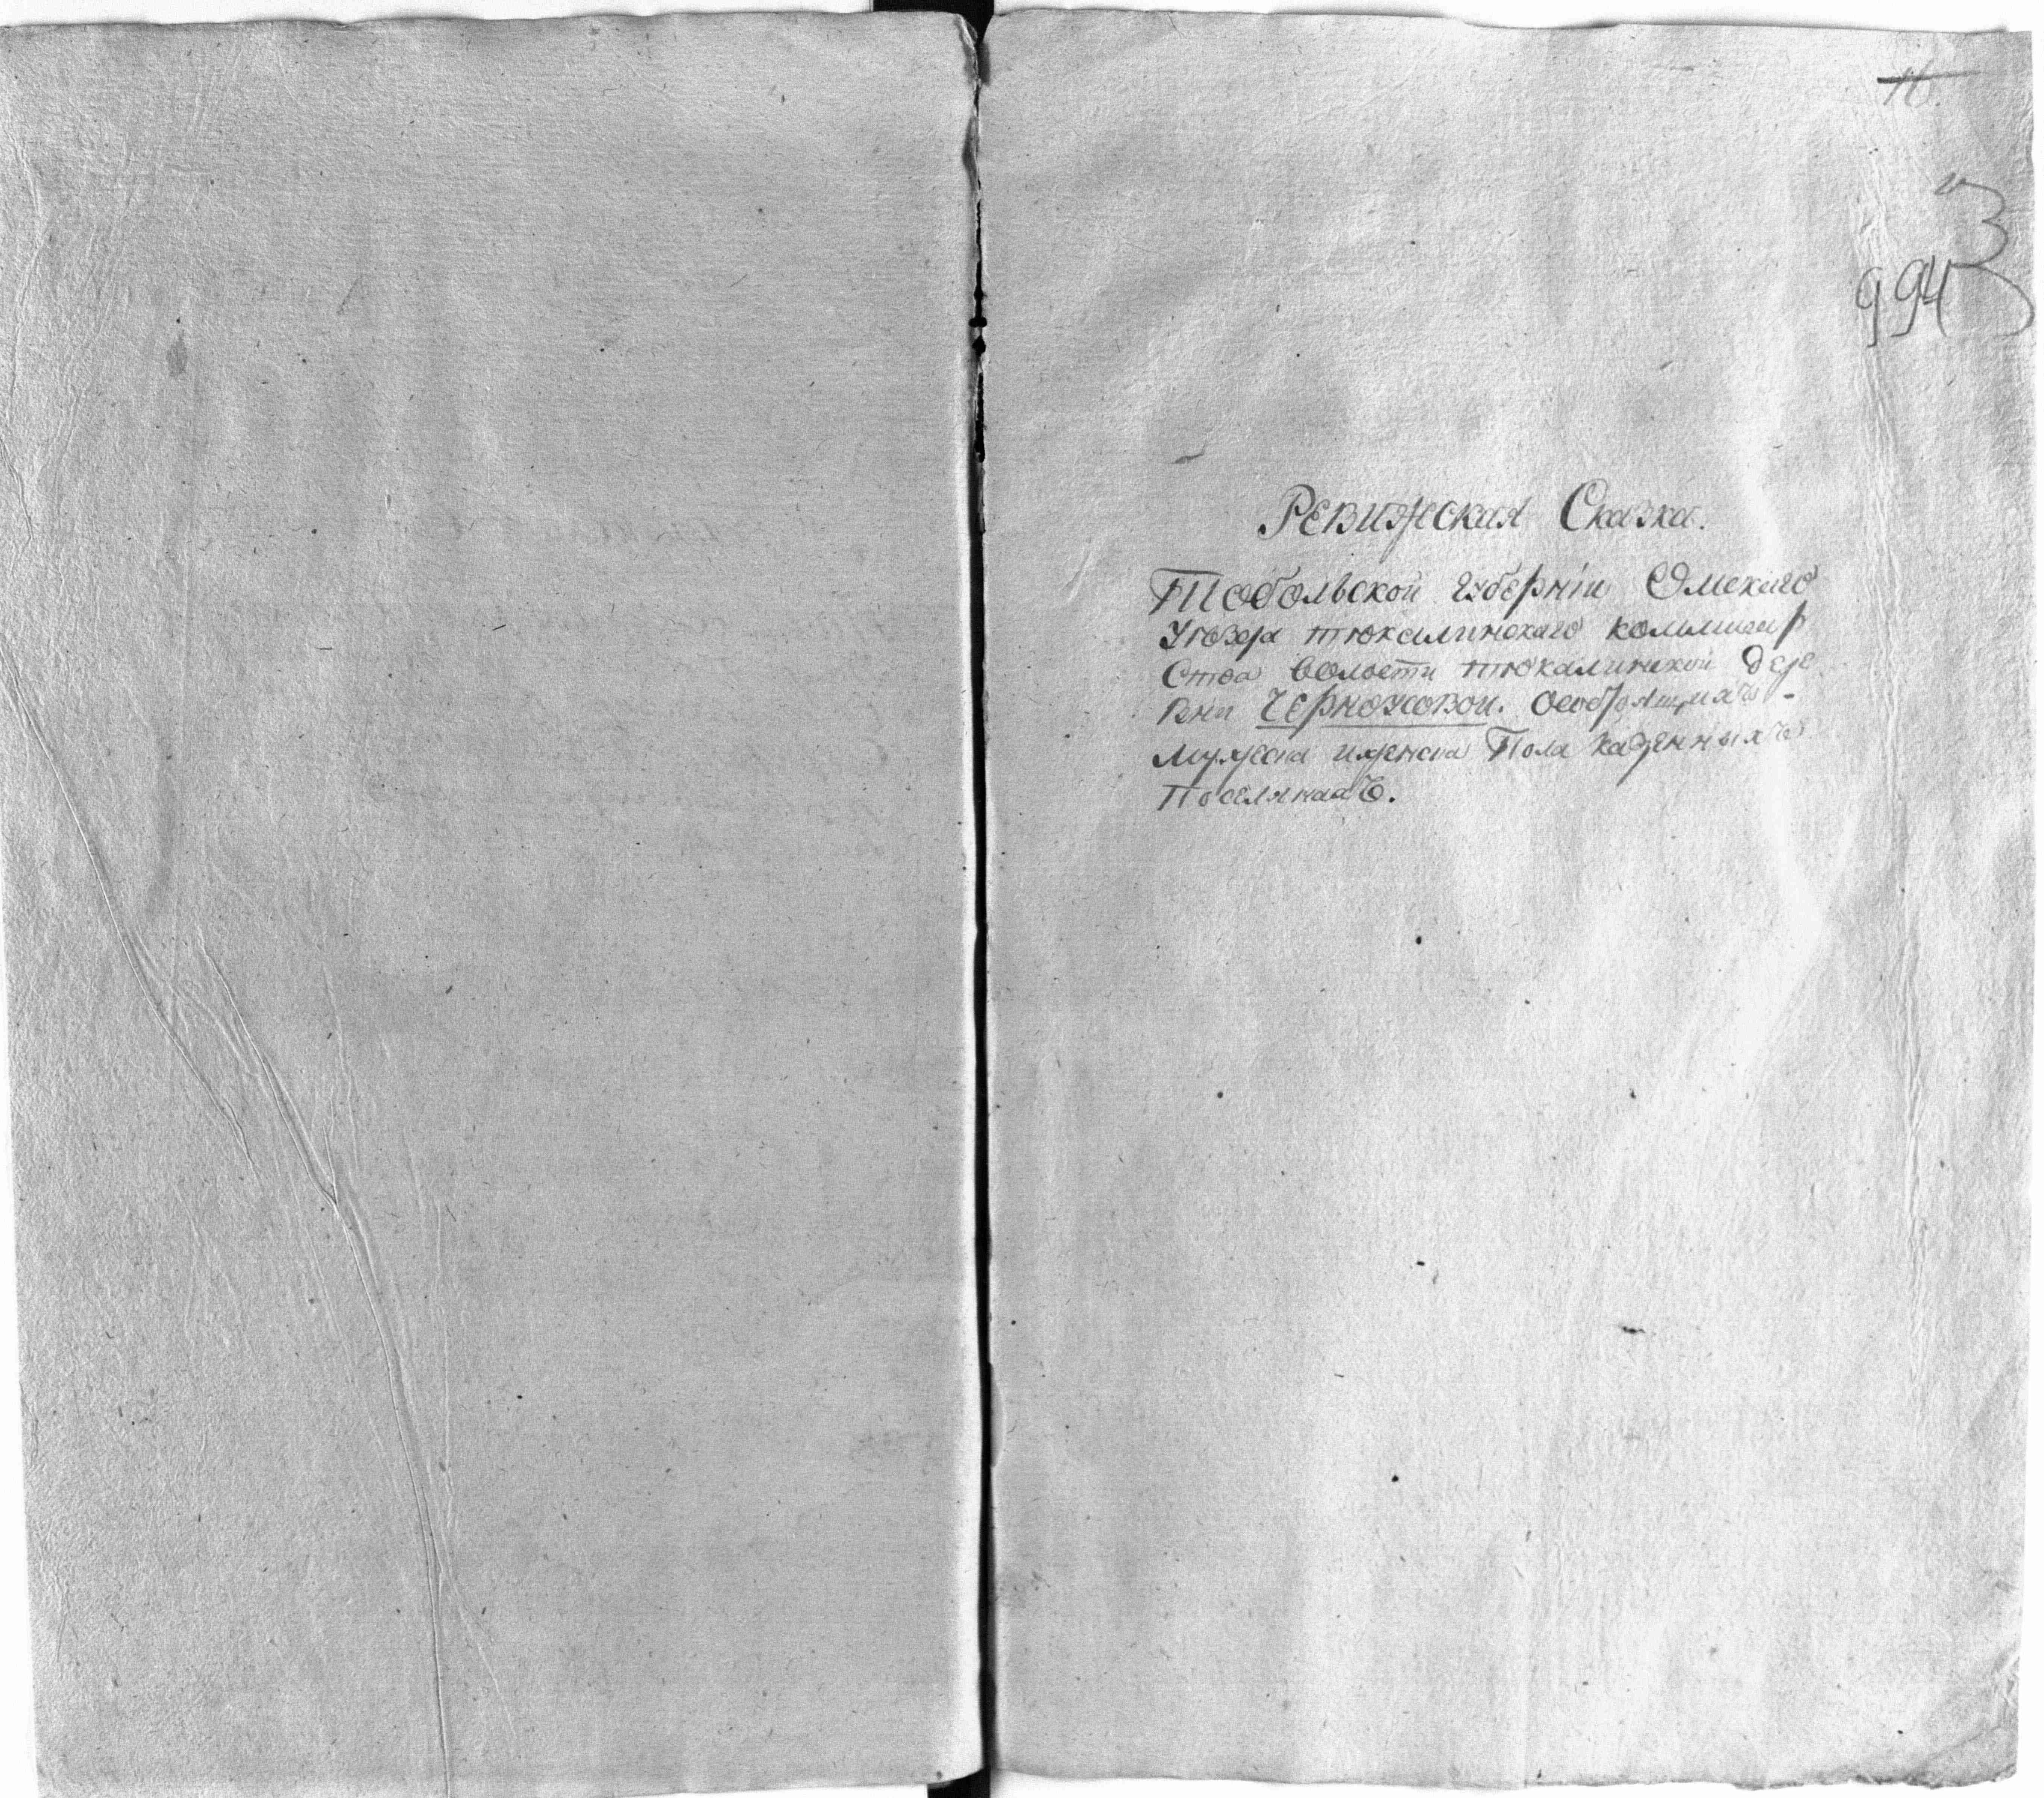 16.
3
994
Ревижская Сказка.
Тобольской губернiи Омскаго
Уѣзда тюкалинскаго коммисар
Ства волости тюкалинской Дере
вни Черножовой. Особоящихъ -
мужеска иженска Пола казенныхъ
Поселянахъ.